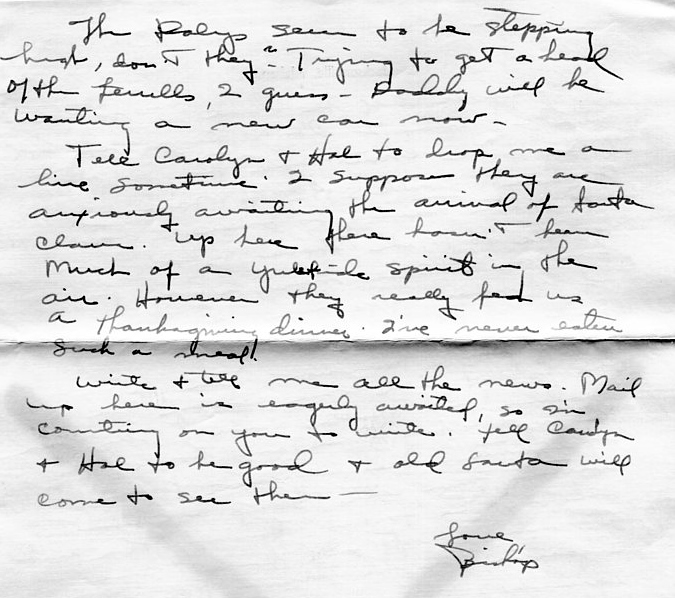 The Dalys seem to be stepping
high, don't they? Trying to get a head
of the Ferrells, I guess - Daddy will be
wanting a new car now -
Tell Carolyn & Hal to drop me a
line sometime. I suppose they are
anxiously awaiting the arrival of Santa
Claus. Up here there hasn't been
Much of a Yuletide spirit in the
air. However they really fed us
a Thanksgiving dinner. I've never eaten
such a meal!
Write & tell me all the news. Mail
up here is eagerly awaited, so I'm
counting on you to write. Tell Carolyn
& Hal to be good & old Santa will
come to see them -
Love
Bishop